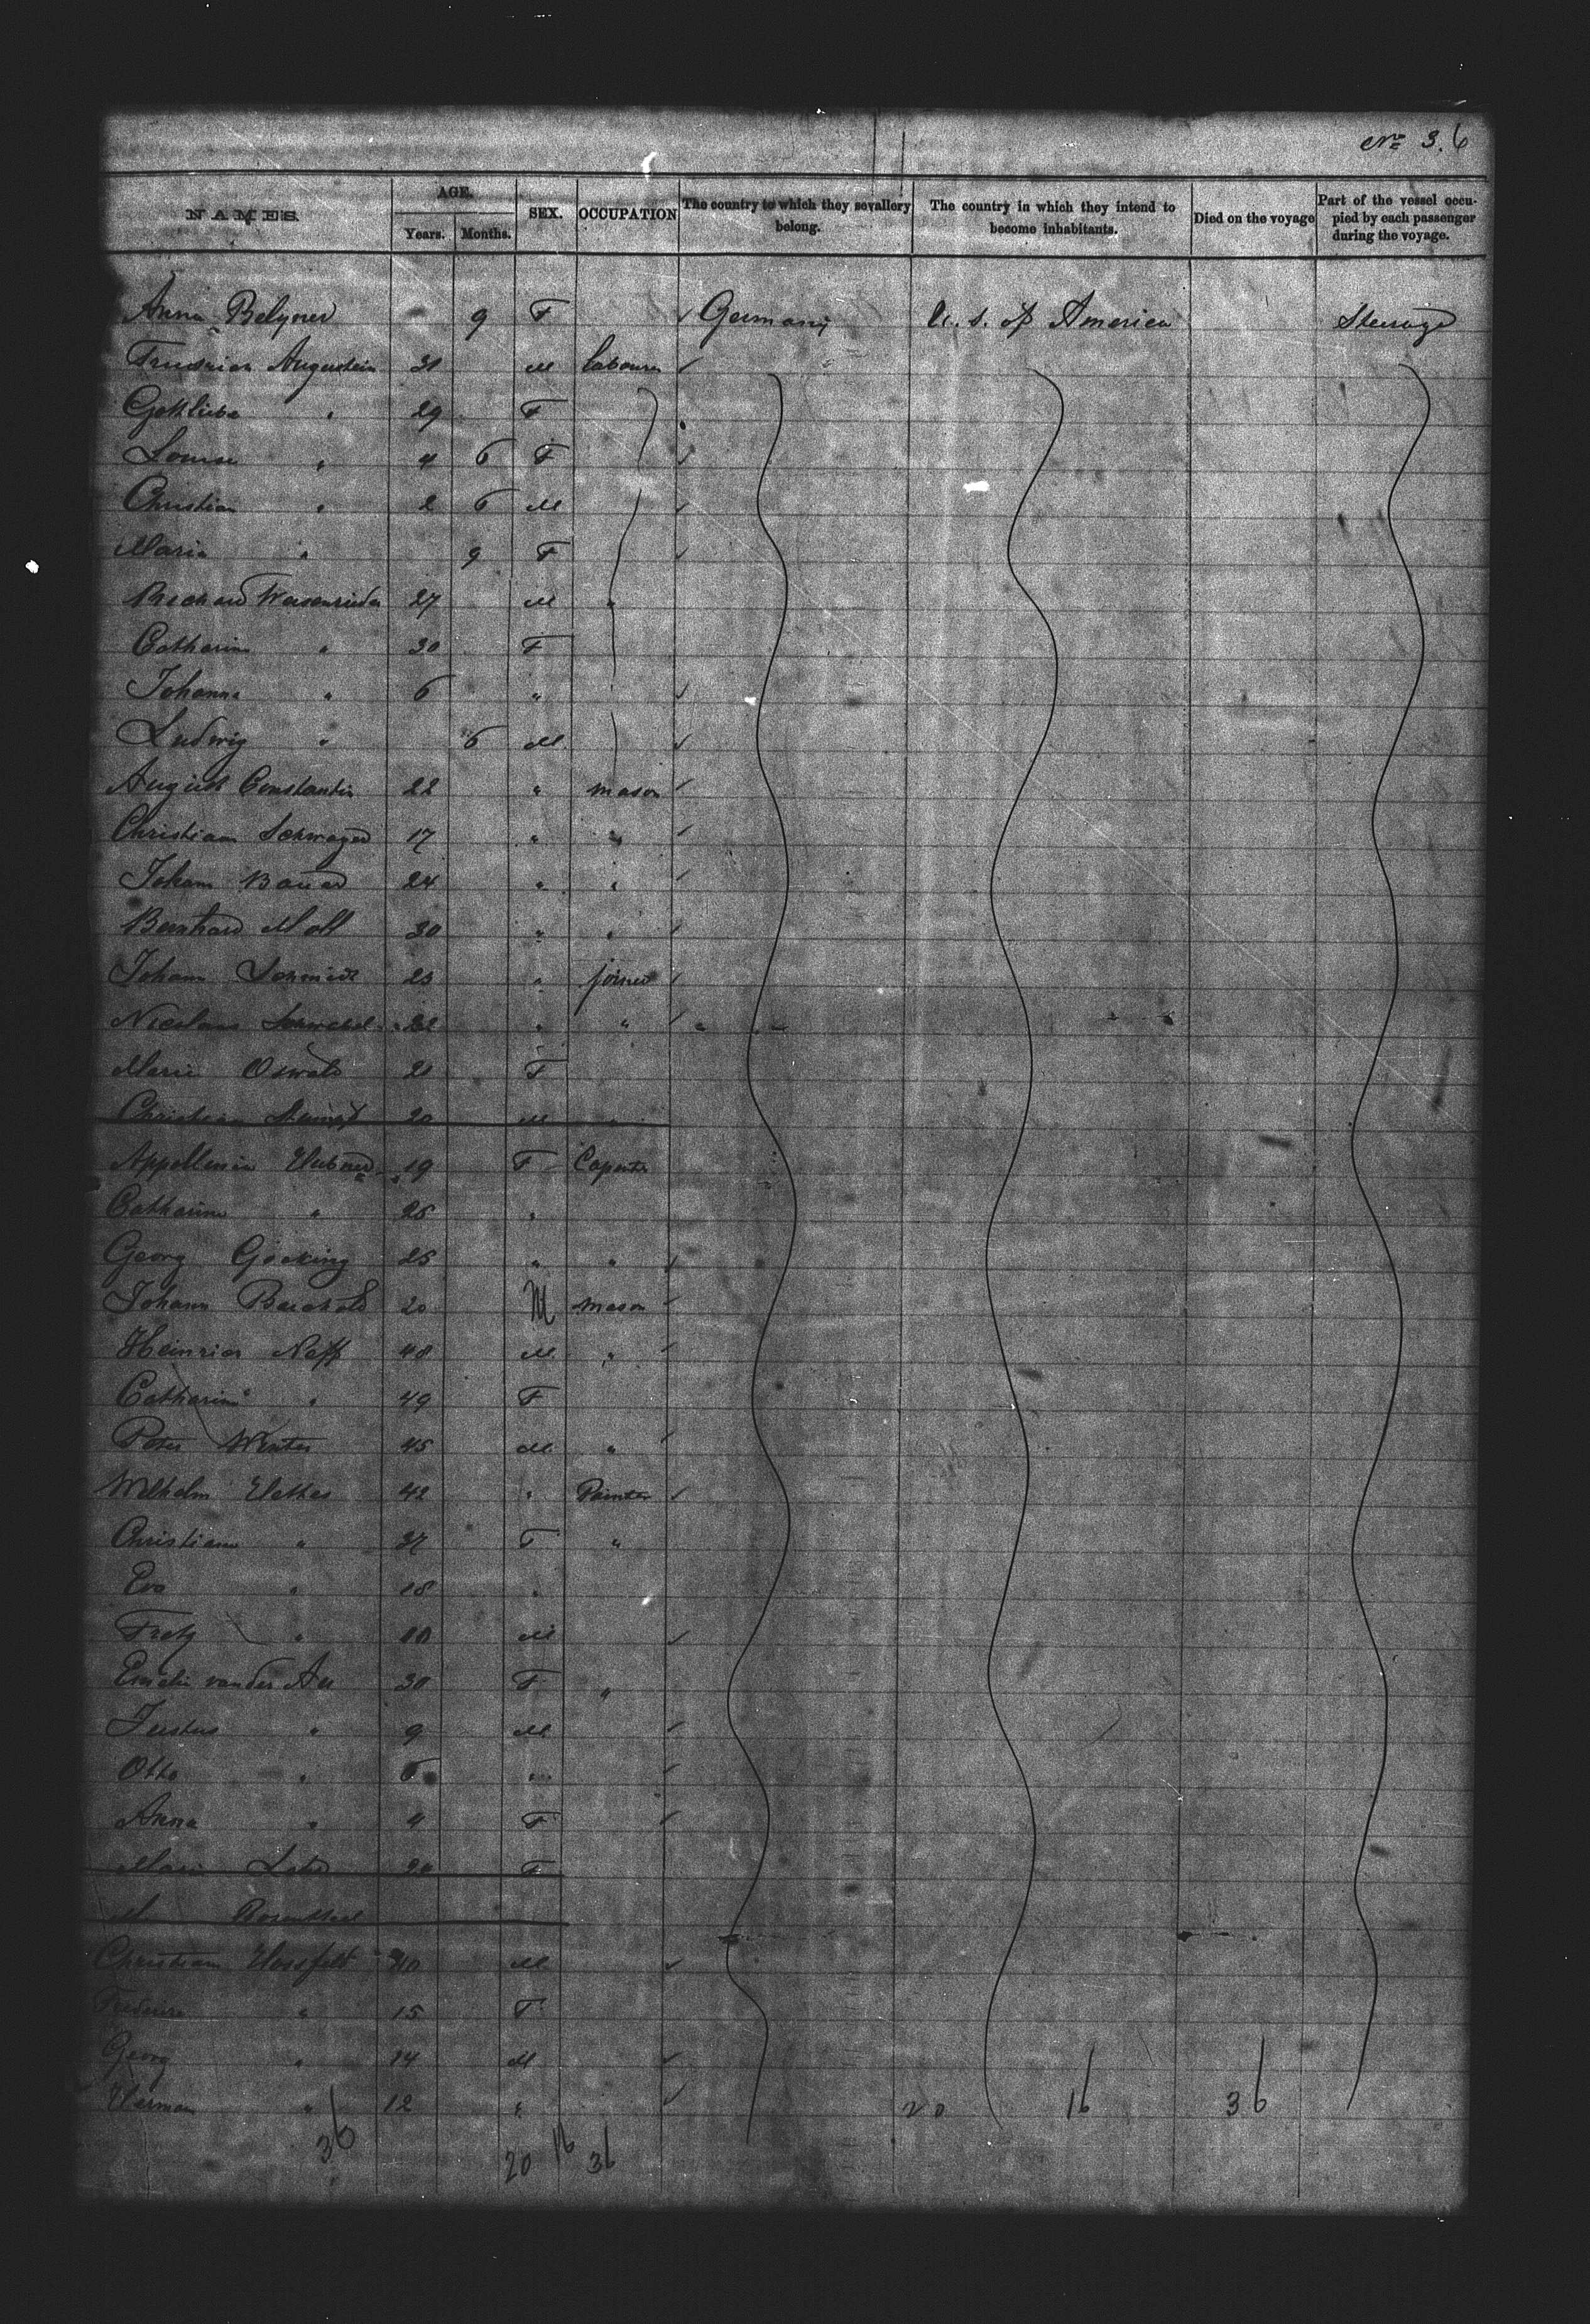 No 3. 6
NAMES. AGE. Years. Months. SEX. OCCUPATION The country to which they sevallery belong. The country in which they intend to become inhabitants. Died on the voyage Part of the vessel occupied by each passenger during the voyage.
Anna 9 F Germany U. S. of America Steerage
Augustein 31 M labourer
" 29 F
Louise " 4 6 F
Christian " 2 6 M
Maria " 9 F
27 M "
Catharina " 30 F
Johanna " 6 "
Ludwig " 6 M
August Constantin 22 " mason
Christian Schwager 17 " "
Johann Bauer 24 " "
Bernhard Moll 30 " "
Johann Schmidt 23 " joiner
22 " "
Marie Oswald 21 F
Christian 20 M "
19 F
Catharina " 26 "
Georg Göcking 25 " "
Johann 20 M mason
Heinrich Neff 48 M "
Catharina " 49 F
Peter Winter 45 M "
Wilhelm 42 " Painter
Christiane " 37 F "
Eva " 18 "
" 10 M
van der Au 30 F "
Justus " 9 M
Otto " 6 "
Anna " 4 F
F
Rosenthal
Christian Hossfeld 40 M
" 15 F
Georg " 14 M
Herman " 12 " 20 16 36
36 20 16 36